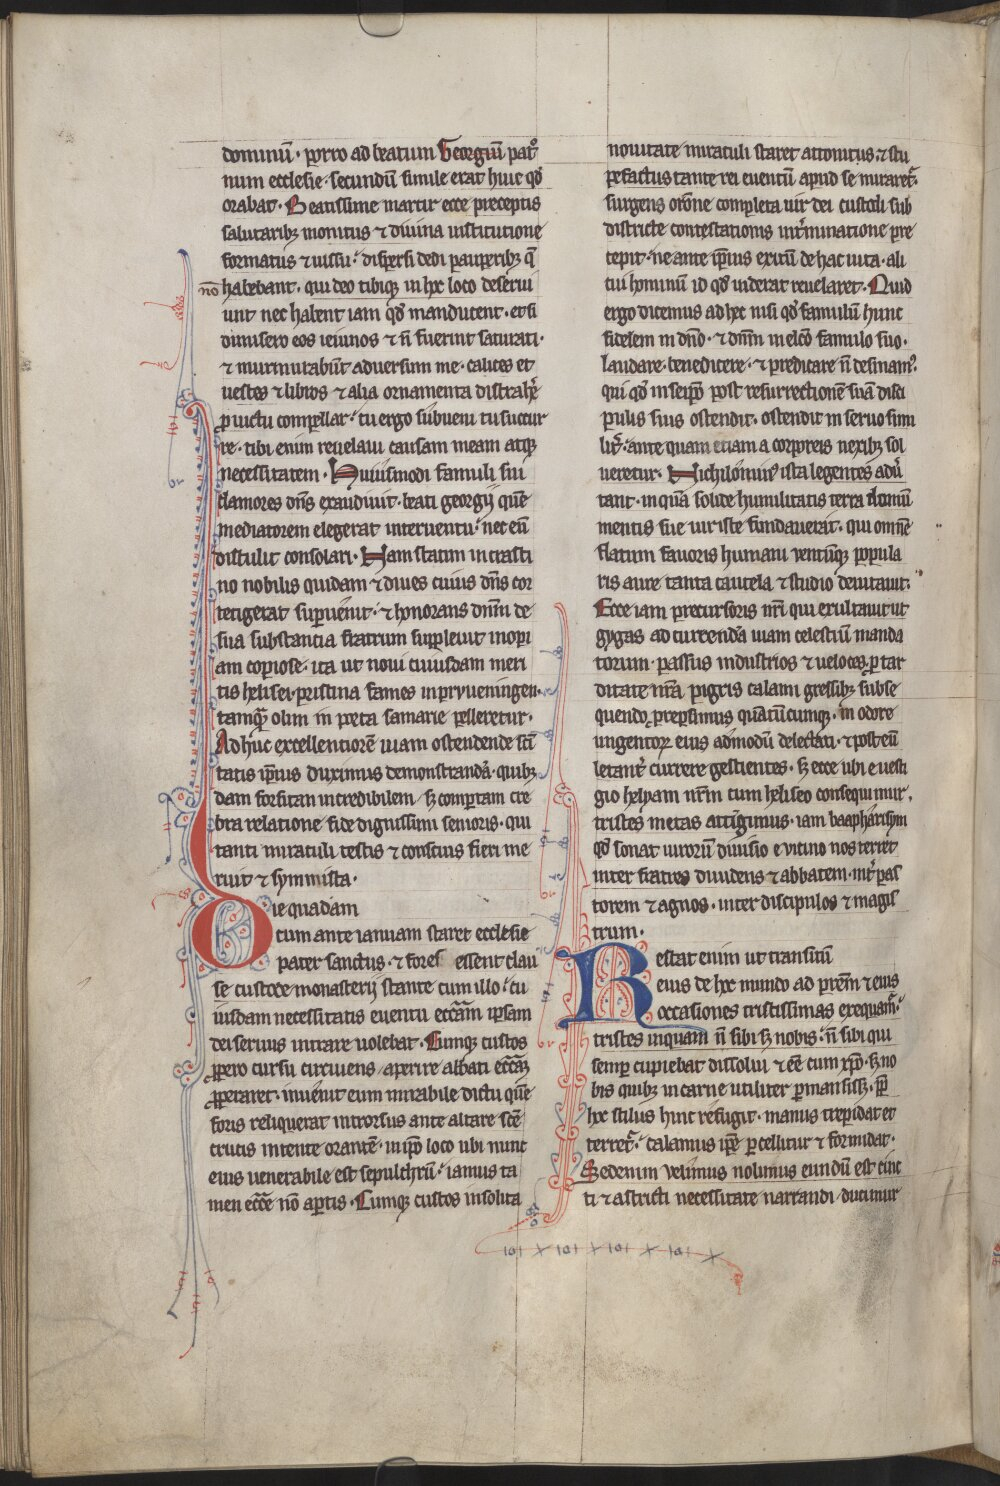 dominū · porro ad beatum Georgiū pat͛
num ecclesie · secundū simile erat huic qd̄
orabat · Beatissime martir ecce preceptis
salutaribꝫ monitus ⁊ diuina institutione
formatus ⁊ uissu · dispersi dedi pauperibꝫ q̄
nō habebant · qui deo tibiqꝫ in hoc loco deserui
unt nec habent iam qd̄ manducent · et si
dimisero eos ieiunos ⁊ ñ fuerint saturati ·
⁊ murmurabūt aduersum me · calices et
uestes ⁊ libros ⁊ alia ornamenta distrahe͛
ꝑ uictu compellar · tu ergo subueni tu succur
re · tibi enim reuelaui causam meam atqꝫ
necessitatem · Huiusmodi famuli sui
clamores dn̄s exaudiuit · beati georgij quē
mediatorem elegerat interuentu · nec eū
distulit consolari · Nam statim in crasti
no nobilis quidam ⁊ diues cuius dn̄s cor
tetigerat suꝑuenit · ⁊ honorans dnm̄ de
sua substantia fratrum suppleuit inopi
am copiose · ita ut noui cuiusdam meri
tis helisei pristina fames in prouueningen ·
tamqᷓ olim in porta samarie pelleretur ·
Ad huc excellentiorē uiam ostendende sc̄i
tatis ip̄ius duximus demonstrandā · quibꝫ
dam forsitan incredibilem / sꝫ compertam cre
bra relatione fide dignissimi senioris · qui
tanti miraculi testis ⁊ conscius fieri me
ruit ⁊ symmista ·
Die quadam
cum ante ianuam staret ecclesie
pater sanctus · ⁊ fores essent clau
se custode monasterij stante cum illo · cu
iusdam necessitatis euentu ecc̄am ipsam
dei seruus intrare uolebat · Cumqꝫ custos
ꝓpero cursu circuiens / aperire abbati ecc̄aꝫ
ꝓperaret · inuenit eum mirabile dictu quē
foris reliquerat introrsus ante altare sc̄e
crucis intente orantē · in ip̄o loco ubi nunc
eius uenerabile est sepulchrū · ianuis ta
men ecc̄e nō aꝑtis · Cumqꝫ custos insolita
nouitate miraculi staret attonitus · ⁊ stu
pefactus tante rei euentū apud se miraret͛ ·
surgens or̄one completa uir dei custodi sub
districte contestationis int͛minatione pre
cepit · ne ante ip̄ius exitū de hac uita · ali
cui hominū id qd̄ uiderat reuelaret · Quid
ergo dicemus ad hec nisi qd̄ famulū hunc
fidelem in dn̄o · ⁊ dnm̄ in elc̄o famulo suo ·
laudare · benedicere · ⁊ predicare ñ desinam⁹
qui qd̄ in seip̄o post resurrectionē suā disci
pulis suis ostendit · ostendit in seruo simi
lit͛ · ante quam etiam a corporeis nexibꝫ sol
ueretur · Nichilomin⁹ ista legentes adu͛
tant · in quā solide humilitatis terra domū
mentis sue uir iste fundauerat · qui omnē
flatum fauoris humani uentūqꝫ popula
ris aure tanta cautela ⁊ studio deuitauit ·
Ecce iam precursoris nr̄i qui exultauit ut
gygas ad currendā uiam celestiū manda
torum · passus industrios ⁊ ueloces · ꝑ tar
ditate nr̄a pigris calami gressibꝫ subse
quendo prepssimus quātūcumqꝫ · in odore
ungentoꝝ eius admodū delectati · ⁊ post eū
letant͛ currere gestientes · sꝫ ecce ubi e uesti
gio helyam nr̄m cum heliseo consequimur ·
tristes metas attīgimus · iam baapharisim
qd̄ sonat uirorū diuisio e uicino nos terret
inter fratres diuidens ⁊ abbatem · int͛ pas
torem ⁊ agnos · inter discipulos ⁊ magis
trum ·
Restat enim ut transitū
eius de hoc mundo ad p̄rem̄ ⁊ eius
occasiones tristissimas exequam͛ ·
tristes inquam ñ sibi sꝫ nobis · ñ sibi qui
semꝑ cupiebat dissolui ⁊ eē cum xp̄o · sꝫ no
bis quibꝫ in carne utiliter ꝑmansissꝫ ·
hoc stilus hinc refugit · manus trepidat et
terret͛ · calamus ip̄e ꝑcellitur ⁊ formidat ·
Sed enim uelimus nolimus eundū est cinc
ti ⁊ astricti necessitate narrandi / ducimur